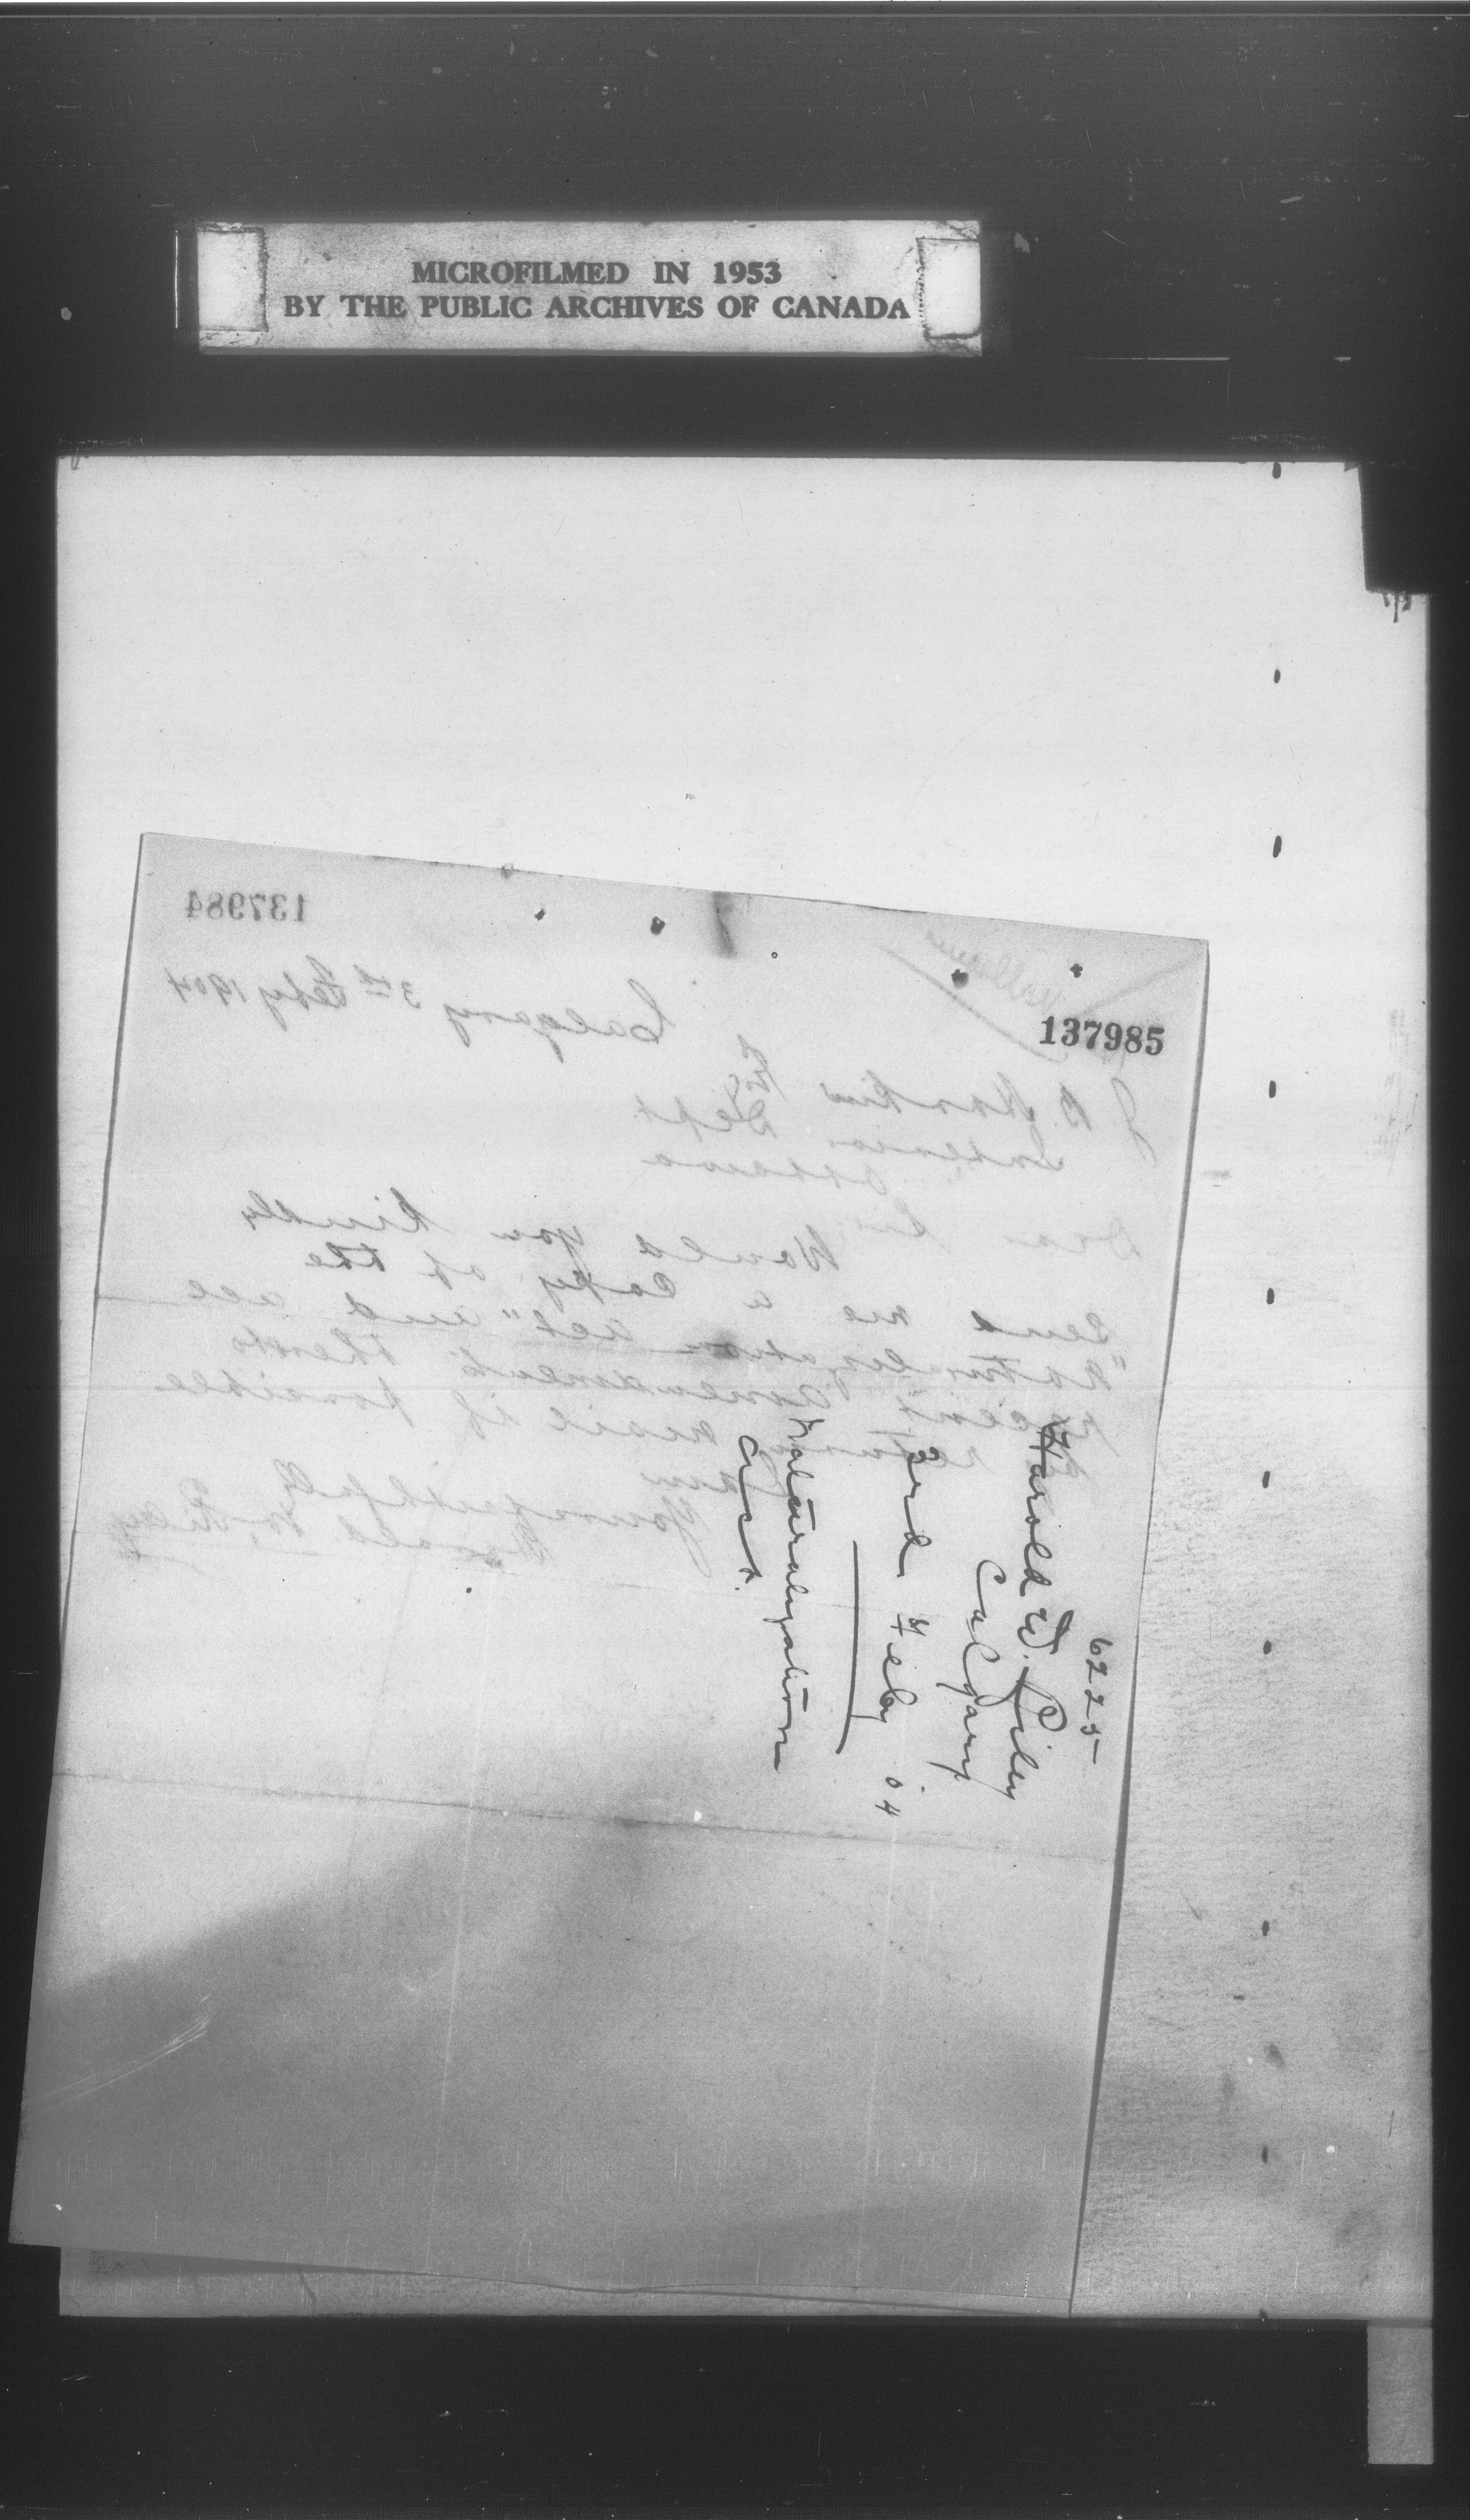 MICROFILMED IN 1953
BY THE PUBLIC ARCHIVES OF CANADA
137984
137985
Calgary 3rd Feby 1904
J B Harkin Esq
Interior Dept
Ottawa
Dear Sir
Would you kindly
send me a copy of the
"Naturalization act" and all
recent amendments thereto
by return mail if possible
I am
Yours faithfully
Harold W. Riley
6225
Harold W. Riley
Calgary
3rd Feby 04
Naturalization
Act.